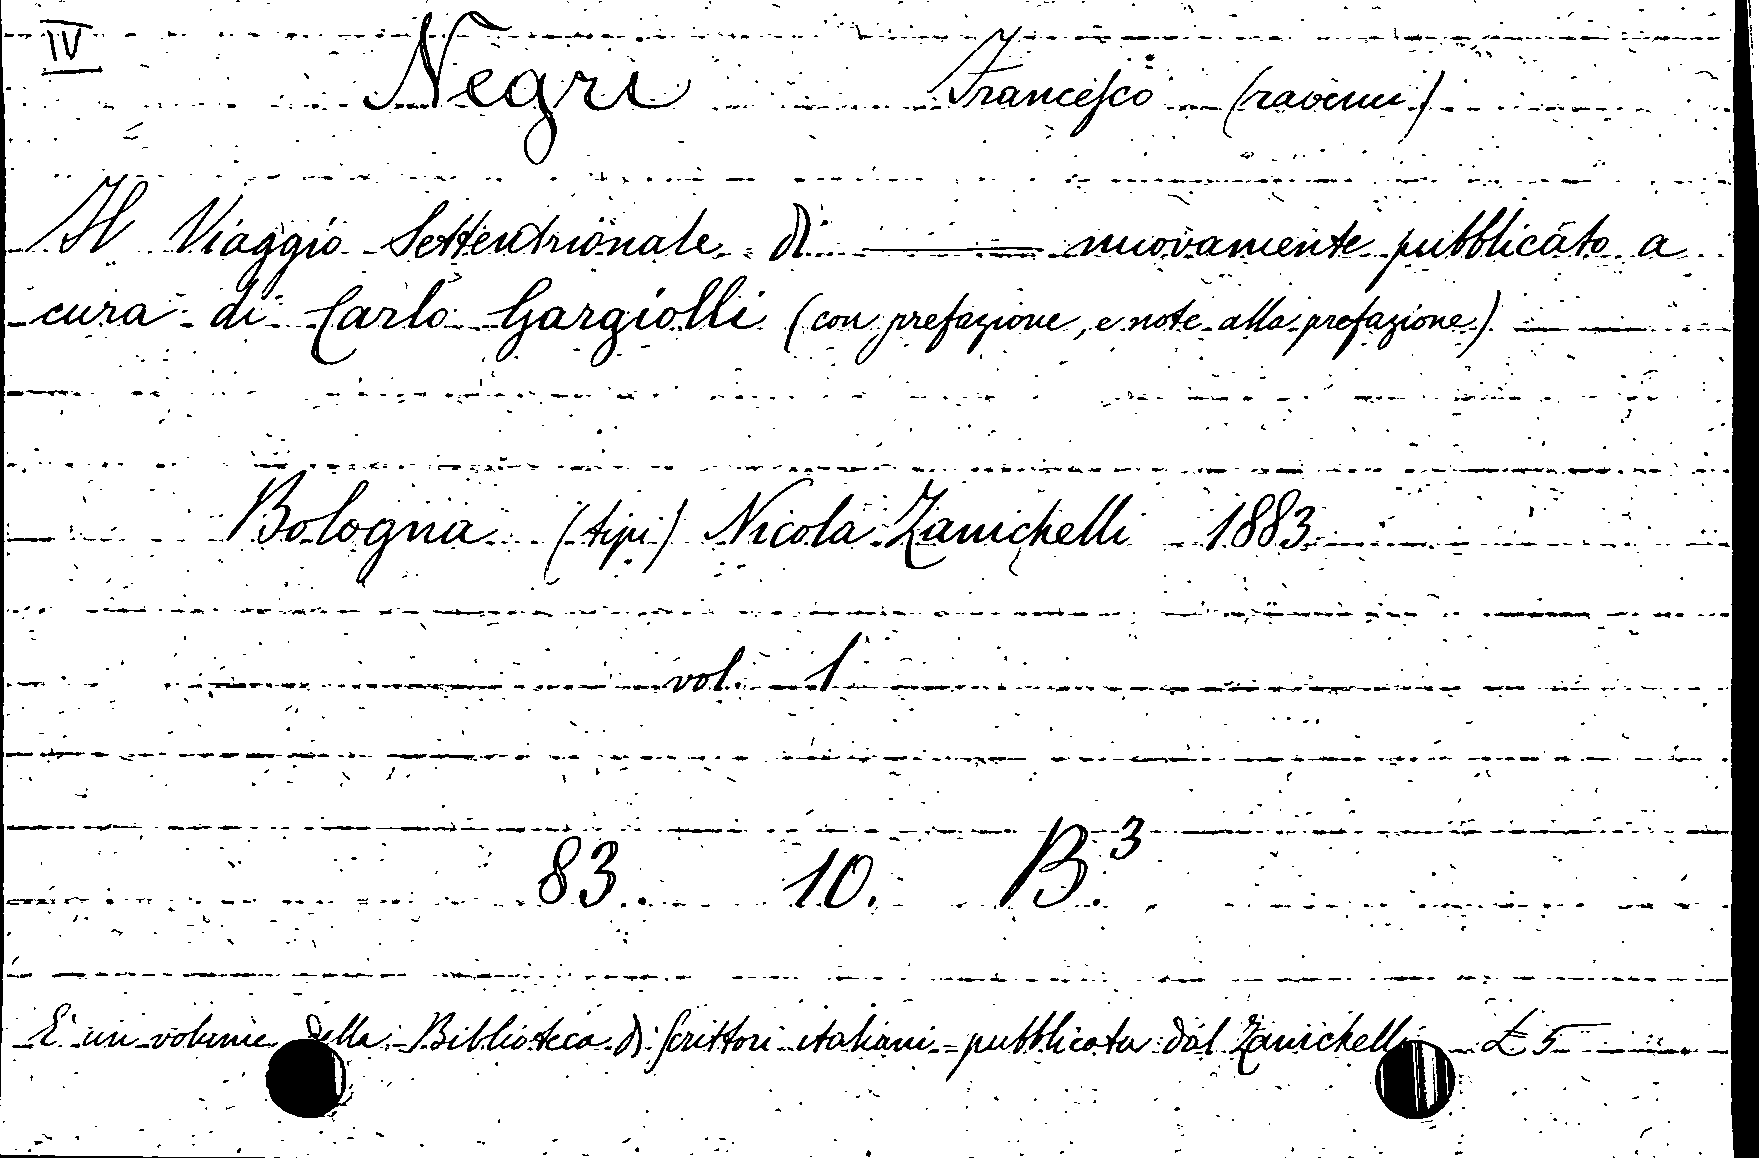 IV
Negri Francesco (ravenn)
Il Viaggio Settentrionale di ——— nuovamente pubblicato a
cura di Carlo Gargiolli (con prefazione, e note alla prefazione)
Bologna (tipi) Nicola Zanichelli 1883
vol. 1
83. 10. B.3
E' un volume della Biblioteca di Scrittori italiani pubblicata dal Zanichelli £ 5